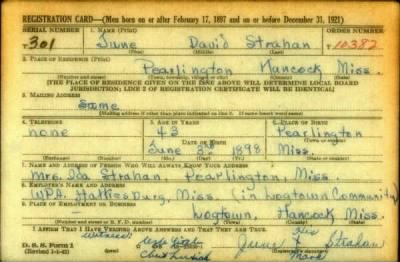 REGISTRATION CARD—(Men born on or after February 17, 1897 and on or before December 31, 1921)
SERIAL NUMBER 1. NAME (Print) ORDER NUMBER
T 301 June David Strahan T 10382
(First) (Middle) (Last)
2. PLACE OF RESIDENCE (Print)
Pearlington Hancock Miss.
(Number and street) (Town, township, village, or city) (County) (State)
[THE PLACE OF RESIDENCE GIVEN ON THE LINE ABOVE WILL DETERMINE LOCAL BOARD
JURISDICTION; LINE 2 OF REGISTRATION CERTIFICATE WILL BE IDENTICAL]
3. MAILING ADDRESS
Same
[Mailing address if other than place indicated on line 2. If same insert word same]
4. TELEPHONE 5. AGE IN YEARS 6. PLACE OF BIRTH
none 43 Pearlington
DATE OF BIRTH
June 3rd 1898 Miss.
7. NAME AND ADDRESS OF PERSON WHO WILL ALWAYS KNOW YOUR ADDRESS
Mrs. Ida Strahan, Pearlington, Miss.
8. EMPLOYER'S NAME AND ADDRESS
WPA Hattiesburg, Miss. (in Logtown Community)
9. PLACE OF EMPLOYMENT OR BUSINESS
Logtown, Hancock Miss.
(Number and street or R. F. D. number) (Town) (County) (State)
I AFFIRM THAT I HAVE VERIFIED ABOVE ANSWERS AND THAT THEY ARE TRUE.
witnesses his
D. S. S. Form 1 June X Strahan
(Revised 1-1-42) mark